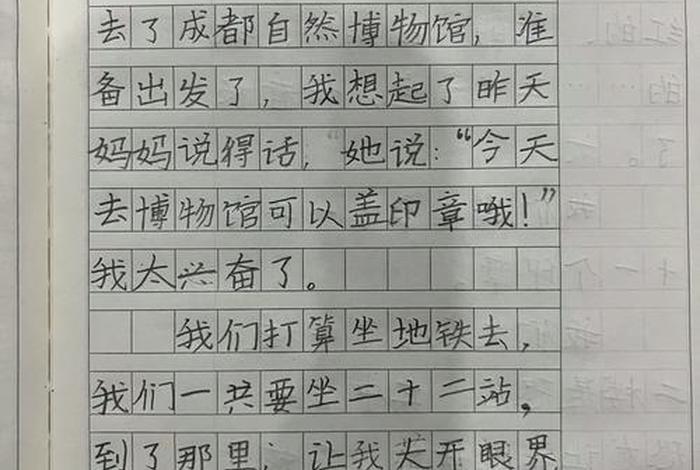 去了成都自然博物馆，准
备出发了，我想起了昨天
妈妈说得话，她说：“今天
去博物馆可以盖印章哦！”
我太兴奋了。
我们打算坐地铁去，
我们一共要坐二十二站。
到了那里，让我大开眼界